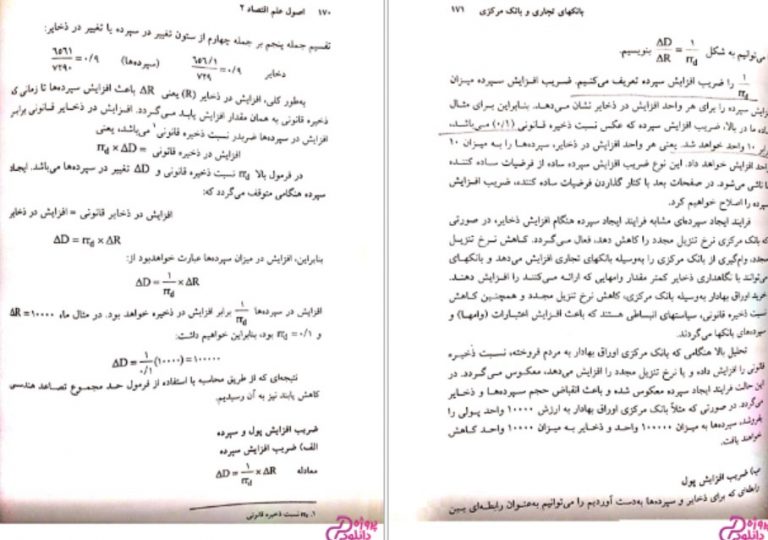 ۱۷۰ اصول علم اقتصاد ۲
تقسیم جمله پنجم بر جمله چهارم از ستون تغییر در سپرده یا تغییر در ذخایر:
ذخایر ۶۵۶/۱ / ۷۲۹ = ۰/۹ (سپرده‌ها) ۶۵۶۱ / ۷۲۹۰ = ۰/۹
به‌طور کلی، افزایش در ذخایر (R) یعنی ΔR باعث افزایش سپرده‌ها تا زمانی‌که
ذخیره قانونی به همان مقدار افزایش یابد می‌گردد. افزایش در ذخایر قانونی برابر
افزایش در سپرده‌ها ضربدر نسبت ذخیره قانونی¹ می‌باشد، یعنی
افزایش در ذخیره قانونی = rrd × ΔD
در فرمول بالا rrd نسبت ذخیره قانونی و ΔD تغییر در سپرده‌ها می‌باشد. ایجاد
سپرده هنگامی متوقف می‌گردد که:
افزایش در ذخایر قانونی = افزایش در ذخایر
ΔD = rrd × ΔR
بنابراین، افزایش در میزان سپرده‌ها عبارت خواهدبود از:
ΔD = 1/rrd × ΔR
افزایش در سپرده‌ها 1/rrd برابر افزایش در ذخیره خواهد بود. در مثال ما، ΔR = ۱۰۰۰۰
و rrd = ۰/۱ بود، بنابراین خواهیم داشت:
ΔD = ۱/۰/۱ (۱۰۰۰۰) = ۱۰۰۰۰۰
نتیجه‌ای که از طریق محاسبه با استفاده از فرمول حد مجموع تصاعد هندسی
کاهش یابند نیز به آن رسیدیم.
ضریب افزایش پول و سپرده
الف) ضریب افزایش سپرده
معادله ΔD = 1/rrd × ΔR
۱. rrd نسبت ذخیره قانونی
پروژه
دانلود
بانکهای تجاری و بانک مرکزی ۱۷۱
می‌توانیم به شکل ΔD/ΔR = 1/rrd بنویسیم.
1/rrd را ضریب افزایش سپرده تعریف می‌کنیم. ضریب افزایش سپرده میزان
افزایش سپرده را برای هر واحد افزایش در ذخایر نشان می‌دهد. بنابراین برای مثال
ساده ما در بالا، ضریب افزایش سپرده که عکس نسبت ذخیره قانونی (۰/۱) می‌باشد،
برابر ۱۰ واحد خواهد شد. یعنی هر واحد افزایش در ذخایر، سپرده‌ها را به میزان ۱۰
واحد افزایش خواهد داد. این نوع ضریب افزایش سپرده ساده از فرضیات ساده کننده
ما ناشی می‌شود. در صفحات بعد با کنار گذاردن فرضیات ساده کننده، ضریب افزایش
سپرده را اصلاح خواهیم کرد.
فرایند ایجاد سپرده‌ای مشابه فرایند ایجاد سپرده هنگام افزایش ذخایر، در صورتی
که بانک مرکزی نرخ تنزیل مجدد را کاهش دهد، فعال می‌گردد. کاهش نرخ تنزیل
مجدد، وام‌گیری از بانک مرکزی را به‌وسیله بانکهای تجاری افزایش می‌دهد و بانکهای
می‌توانند با نگاهداری ذخایر کمتر مقدار وامهایی که ارائه می‌کنند را افزایش دهند.
خرید اوراق بهادار به‌وسیله بانک مرکزی، کاهش نرخ تنزیل مجدد و همچنین کاهش
نسبت ذخیره قانونی، سیاستهای انبساطی هستند که باعث افزایش اعتبارات (وامها) و
سپرده‌های بانکها می‌گردند.
تحلیل بالا هنگامی که بانک مرکزی اوراق بهادار به مردم فروخته، نسبت ذخیره
قانونی را افزایش داده و یا نرخ تنزیل مجدد را افزایش می‌دهد، معکوس می‌گردد. در
این حالت فرایند ایجاد سپرده معکوس شده و باعث انقباض حجم سپرده‌ها و ذخایر
می‌گردد. در صورتی که مثلاً بانک مرکزی اوراق بهادار به ارزش ۱۰۰۰۰ واحد پولی را
بفروشد، سپرده‌ها به میزان ۱۰۰۰۰۰ واحد و ذخایر به میزان ۱۰۰۰۰ واحد کاهش
خواهند یافت.
ب) ضریب افزایش پول
رابطه‌ای که برای ذخایر و سپرده‌ها به‌دست آوردیم را می‌توانیم به‌عنوان رابطه‌ای بین
پروژه
دانلود